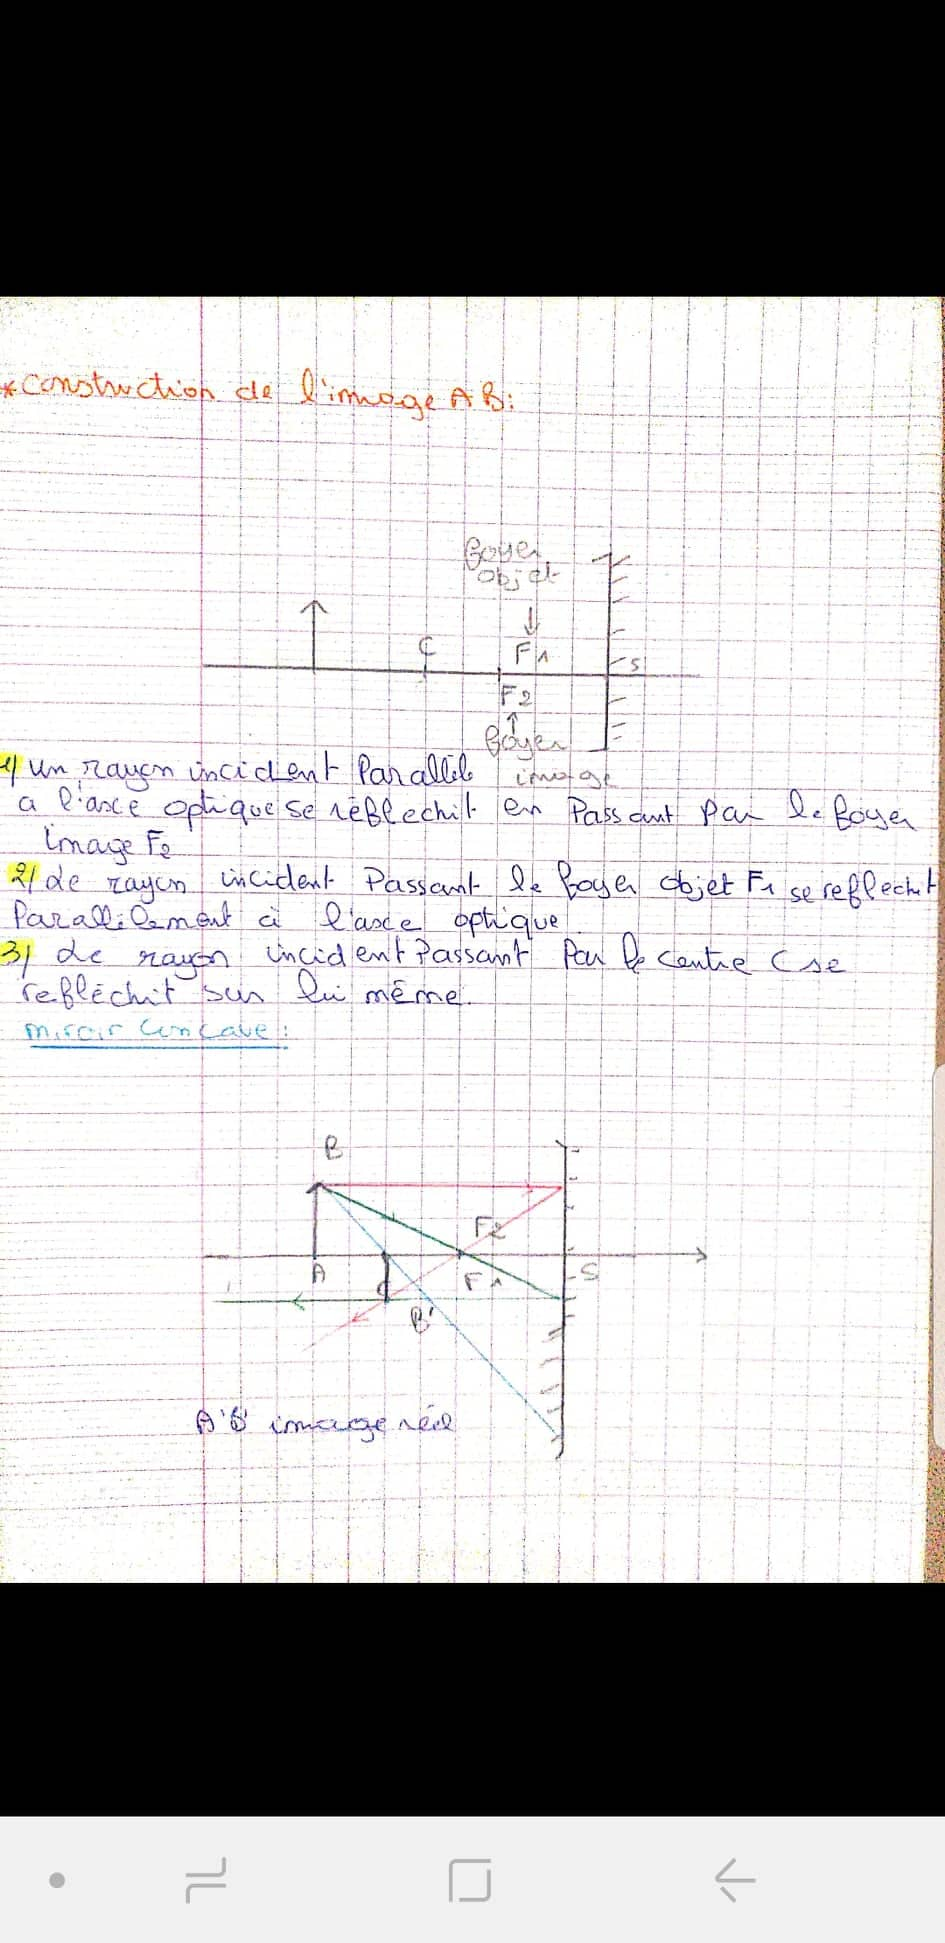 * Construction de l'image AB:
foyer
objet
C
F1
S
F2
foyer
1) un rayon incident Parallèl image
a l'axe optique se réflechit en Passant Par le foyer
image F2
2) Le rayon incident Passant le foyer objet F1 se reflechit
Parallèlement à l'axe optique
3) Le rayon incident Passant Par le centre C se
refléchit sur lui même.
miroir Concave:
B
F2
A
C
F1
S
B'
A'B' image réel